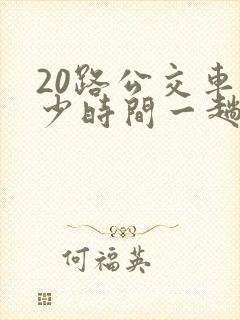 20路公交車
少時間一趟
何福英